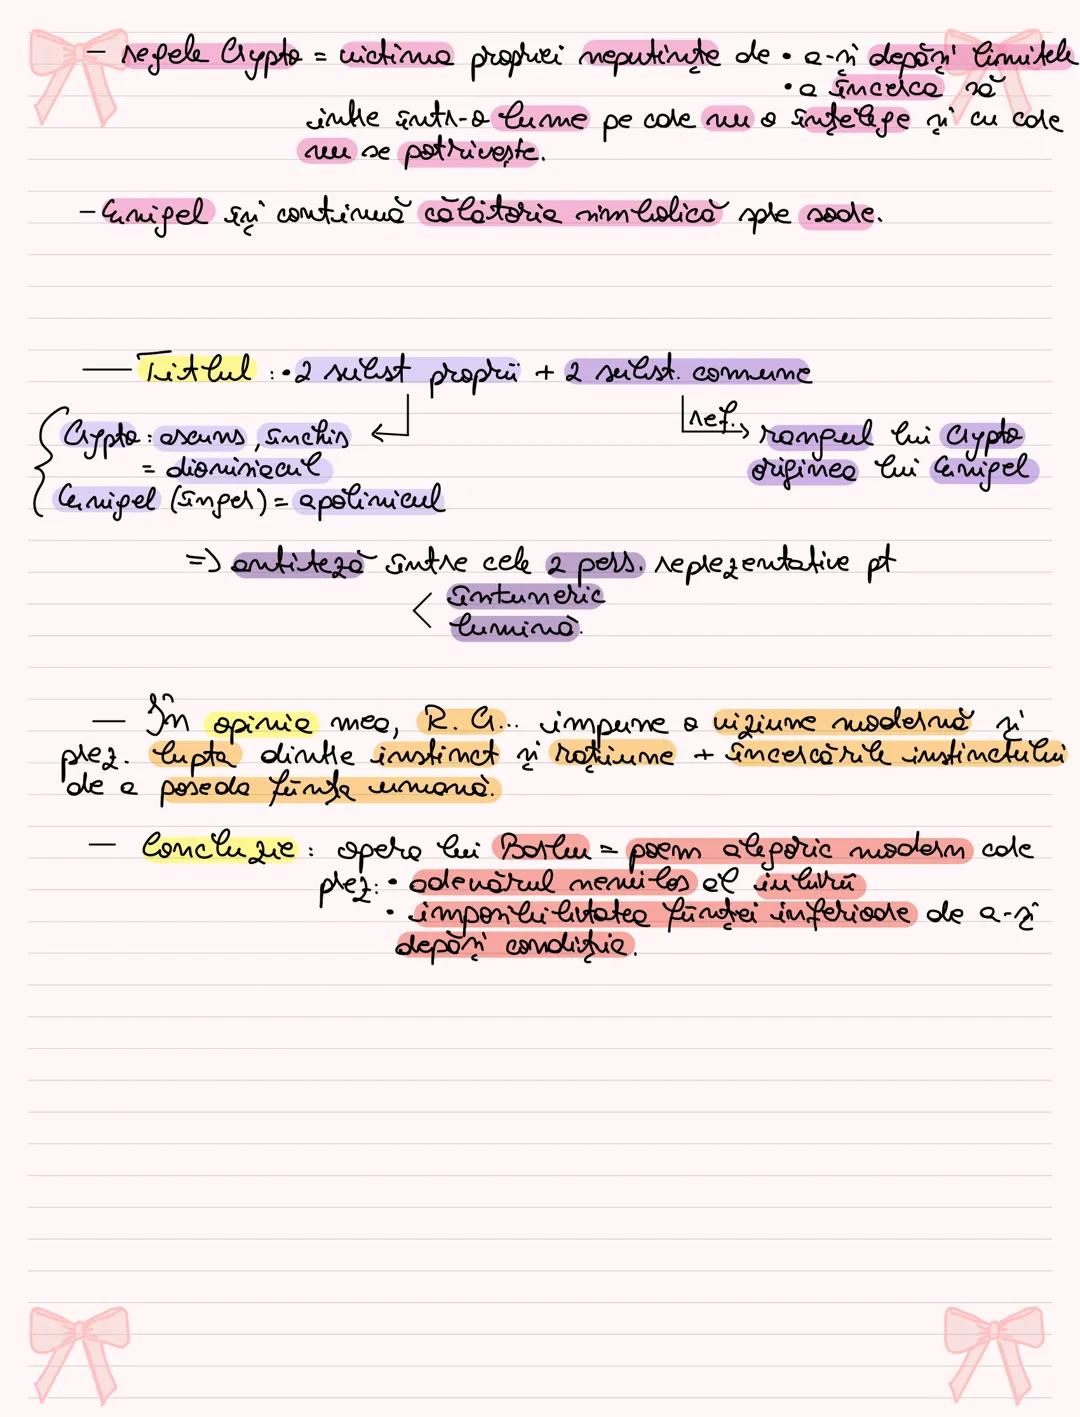 - regele Crypto = victima propriei neputințe de • a-și depăși limitele
• a încerca să
intre într-o lume pe care nu o înțelege și cu care
nu se potrivește.
- Enigel își continuă călătoria simbolică spre soare.
— Titlul : • 2 subst proprii + 2 subst. comune
Crypto : ascuns, închis
= dionisiacul
Enigel (înger) = apolinicul
ref. → rangul lui Crypto
originea lui Enigel
=> antiteză între cele 2 pers. reprezentative pt
< întuneric
lumină.
— În opinia mea, R. C... impune o viziune modernă și
prez. lupta dintre instinct și rațiune + încercările instinctului
de a poseda ființa umană.
— Concluzie : opera lui Barbu = poem alegoric modern care
prez: • adevărul nemilos al iubirii
• imposibilitatea ființei inferioare de a-și
depăși condiția.